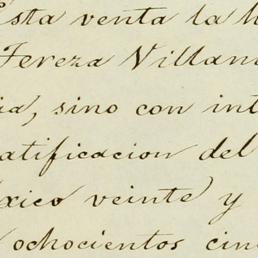 Esta venta la h
Tereza Villan
ia, sino con int
atificacion del
xico veinte y
ochocientos cin